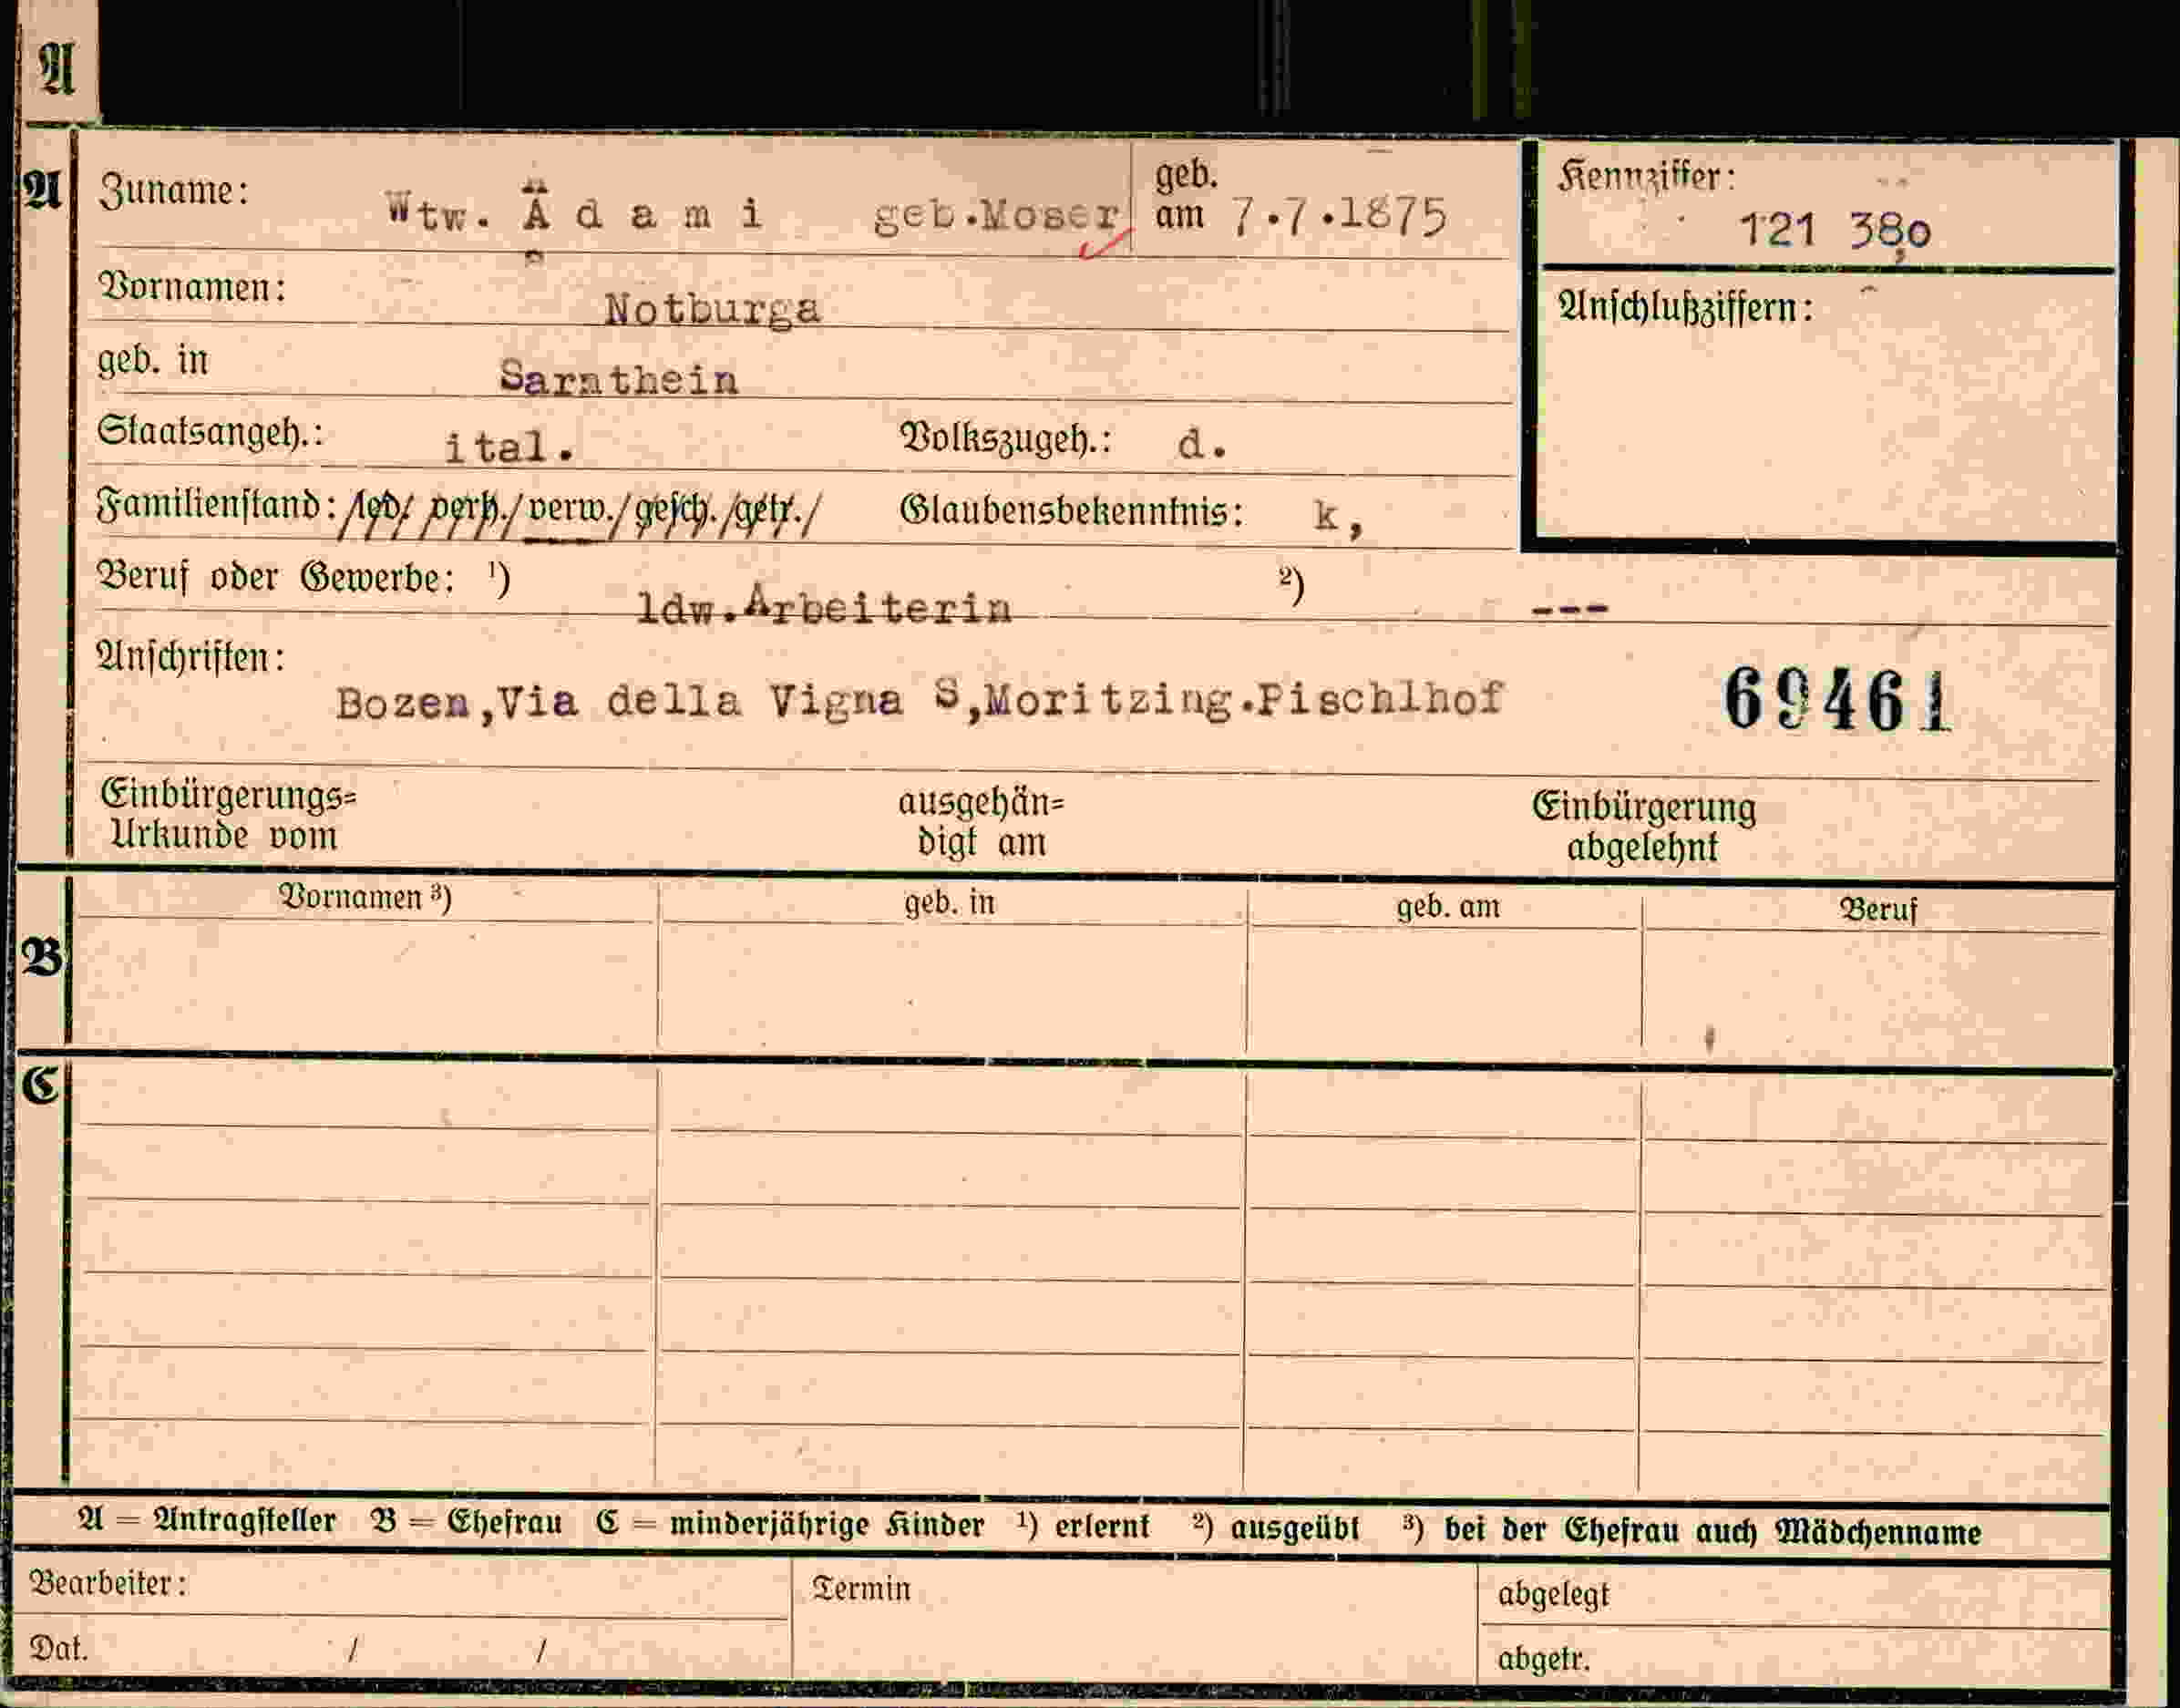 A
A
Zuname: Wtw. Ä d a m i geb.Moser geb. am 7.7.1875
Kennziffer: 121 380
Vornamen: Notburga
Anschlußziffern:
geb. in Sarnthein
Staatsangeh.: ital. Volkszugeh.: d.
Familienstand: /led/ verh./ verw./ gesch. /getr./ Glaubensbekenntnis: k,
Beruf oder Gewerbe: ¹) ldw.Arbeiterin ²) ---
Anschriften:
Bozen,Via della Vigna S,Moritzing.Pischlhof 69461
Einbürgerungs= ausgehän= Einbürgerung
Urkunde vom digt am abgelehnt
Vornamen ³) geb. in geb. am Beruf
B
C
A = Antragsteller B = Ehefrau C = minderjährige Kinder ¹) erlernt ²) ausgeübt ³) bei der Ehefrau auch Mädchenname
Bearbeiter: Termin abgelegt
Dat. / / abgetr.